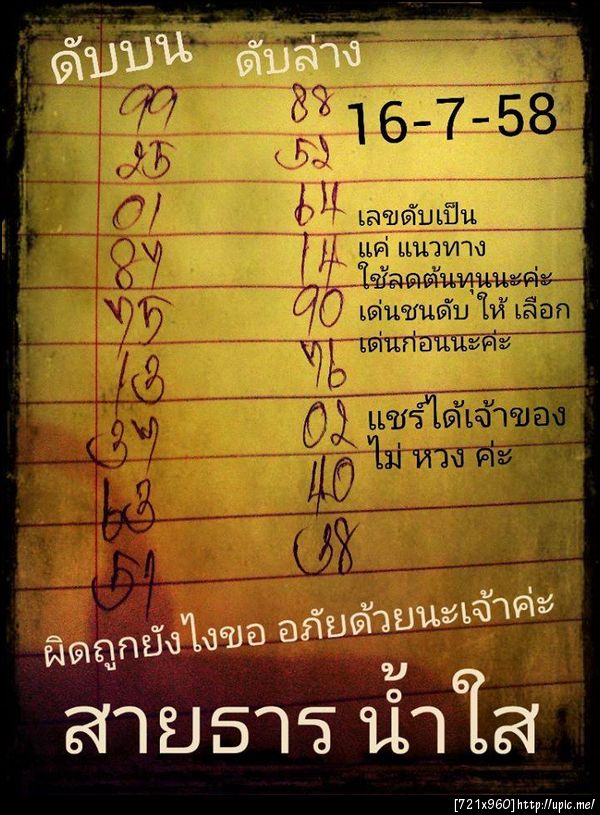 ดับบน ดับล่าง
99 88
16-7-58
25 52
01 64
เลขดับเป็น
แค่ แนวทาง
87 14
ใช้ลดต้นทุนนะค่ะ
75 90
เด่นชนดับ ให้ เลือก
เด่นก่อนนะค่ะ
13 76
แชร์ได้เจ้าของ
ไม่ หวง ค่ะ
37 02
63 40
51 38
ผิดถูกยังไงขอ อภัยด้วยนะเจ้าค่ะ
สายธาร น้ำใส
[721x960]http://upic.me/